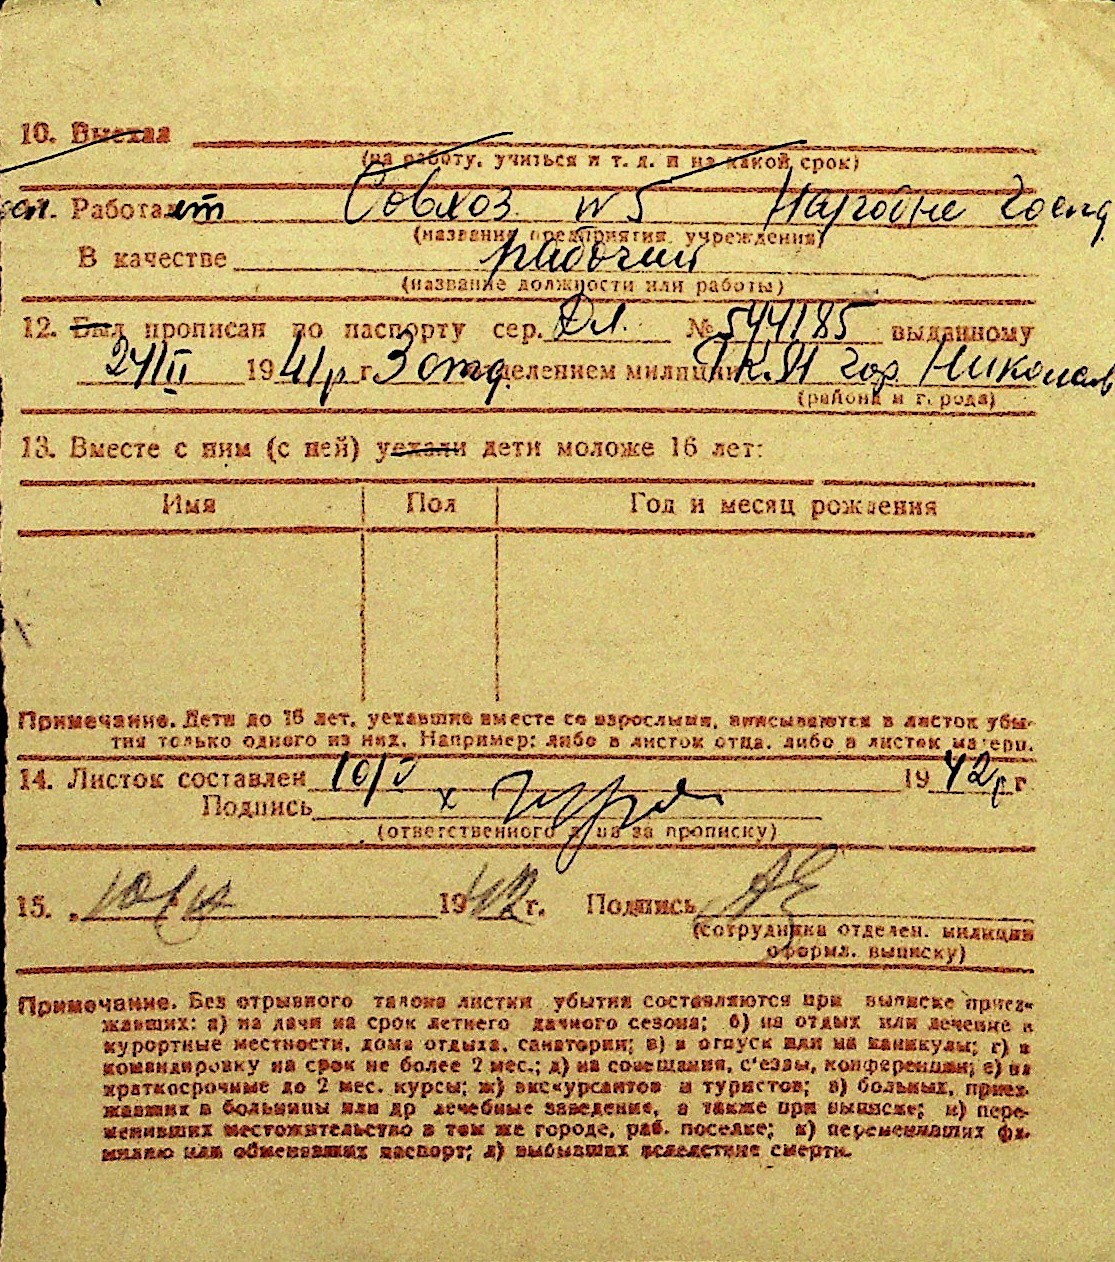 10. Выехал
(на работу, учиться и т. д. и на какой срок)
11. Работает Совхоз № 5
(название предприятия, учреждения)
В качестве рабочий
(название должности или работы)
12. Был прописан по паспорту сер. № 544185 выданному
24/II 1941 г. 3 отделением милиции гор Никол
(района и города)
13. Вместе с ним (с ней) уехали дети моложе 16 лет:
Имя Пол Год и месяц рождения
Примечание. Дети до 16 лет, уехавшие вместе со взрослыми, вписываются в листок убы-
тия только одного из них. Например: либо в листок отца, либо в листок матери.
14. Листок составлен 10/V 1942 г
Подпись
(ответственного лица за прописку)
15. 1942 г. Подпись
(сотрудника отделен. милиции
оформл. выписку)
Примечание. Без отрывного талона листки убытия составляются при выписке приез-
жавших: а) на дачи на срок летнего дачного сезона; б) на отдых или лечение в
курортные местности, дома отдыха, санатории; в) в отпуск или на каникулы; г) в
командировку на срок не более 2 мес.; д) на совещания, с'езды, конференции; е) на
краткосрочные до 2 мес. курсы; ж) экскурсантов и туристов; з) больных, приез-
жавших в больницы или др лечебные заведение, а также при выписке; и) пере-
менивших местожительство в том же городе, раб. поселке; к) переменивших фа-
милию или обменявших паспорт; л) выбывших вследствие смерти.